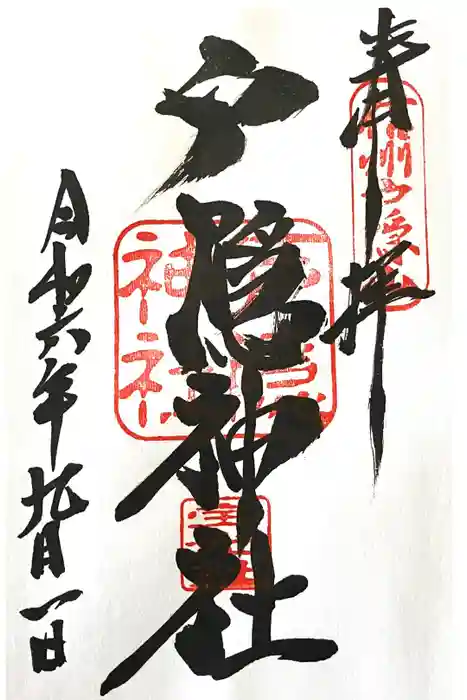 奉拝
戸隠神社
戸隠
神社
令和六年九月一日